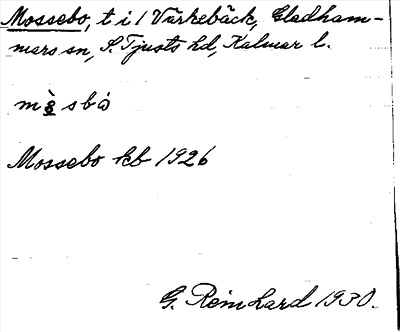 Mossebo, t i 1 Värkebäck, Gladham-
mars sn, S Tjusts hd, Kalmar l.
Mossebo kb 1926
G. Reinhard 1930.